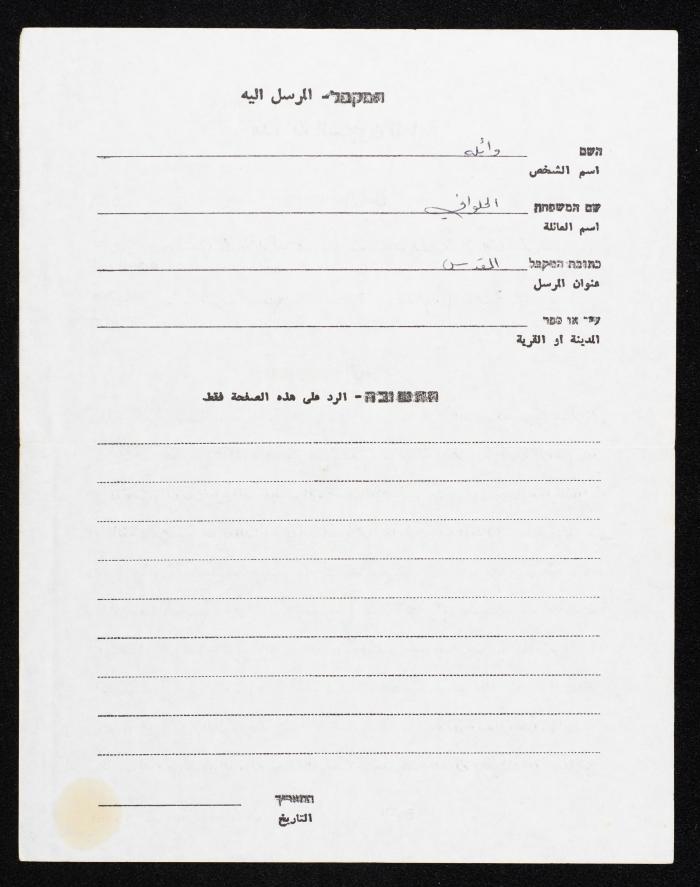 המקבל - المرسل اليه
השם وائله
اسم الشخص
שם המשפחת الحلواني
اسم العائلة
כתובת המקבל القدس
عنوان المرسل
עיר או כפר
المدينة أو القرية
התשובה - الرد على هذه الصفحة فقط
התאריך
التاريخ